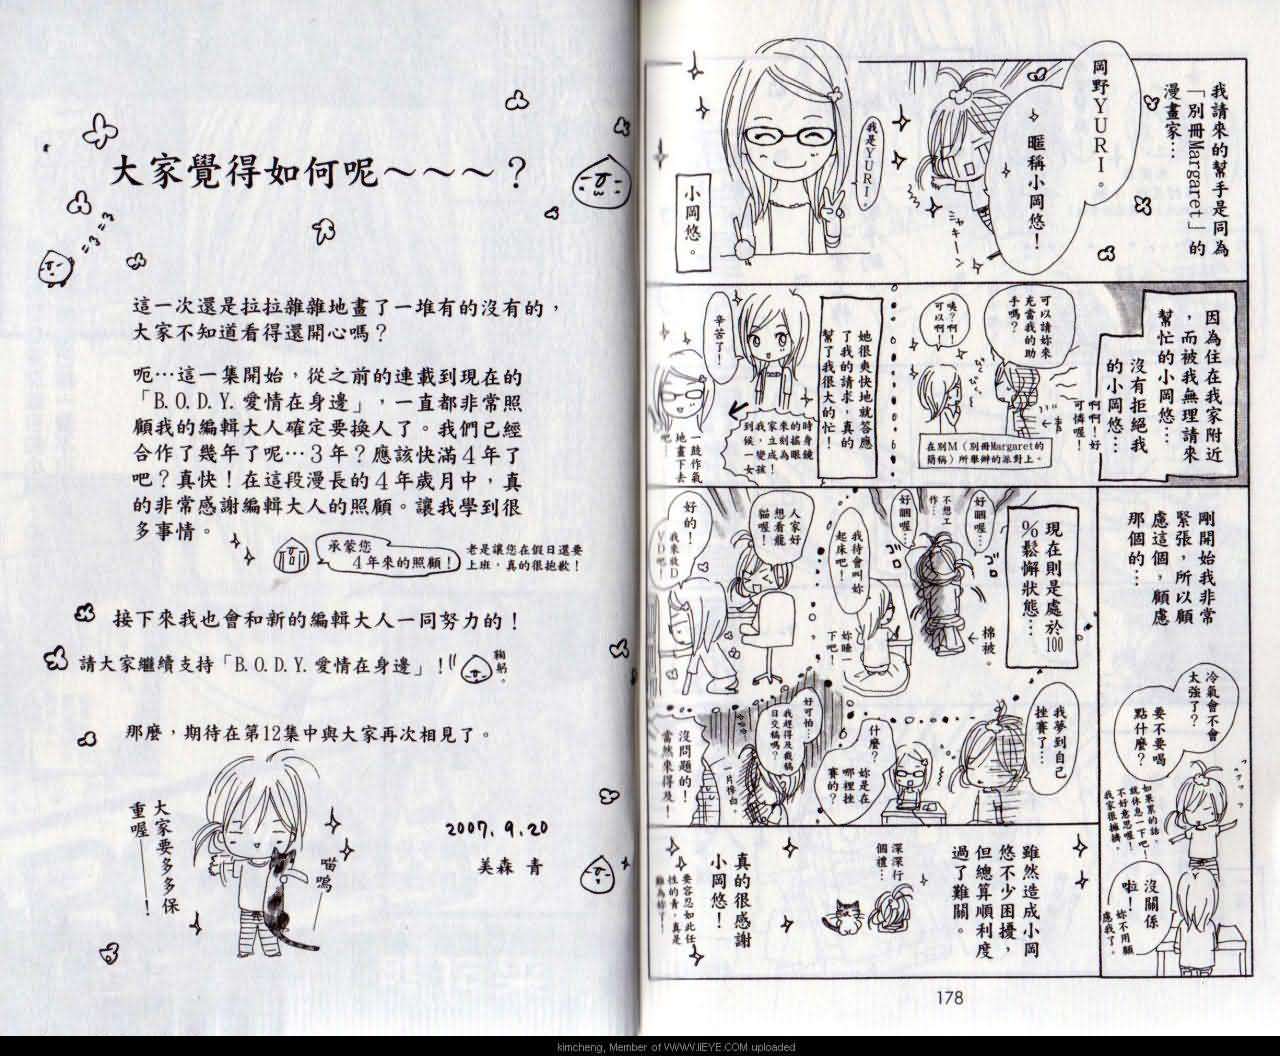 我請來的幫手是同為
「別冊Margaret」的
漫畫家…
岡野YURI。
暱稱小岡悠！
ジャキーン
我是YURI。
小岡悠。
因為住在我家附近
，而被我無理請來
幫忙的小岡悠…
沒有拒絕我
的小岡悠…
啊啊！好
可憐喔！
可以請妳來
充當我的助
手嗎？
咦？啊！
可以啊！
在別M（別冊Margaret的
簡稱）所舉辦的派對上。
她很爽快地就答應
了我的請求，真的
幫了我很大的忙！
辛苦了！
一鼓作氣
地畫下去
吧！
剛開始我非常
緊張，所以顧
慮這個，顧慮
那個的…
冷氣會不會
太強了？
要不要喝
點什麼？
如果累的話，
就休息一下吧！
不好意思喔！
我家很擁擠。
沒關係
啦！
妳不用顧
慮我了。
現在則是處於100
%鬆懈狀態…
好睏喔…
不想工
作…
好睏喔…
ゴロ
ゴロ
棉被。
我待會叫妳
起床吧！
妳睡一
下吧！
人家好
想看龍
貓喔！
好的！
我來放D
VD吧！
我夢到自己
挫賽了…
什麼？
妳是在
哪裡挫
賽的？
好可怕…
我趕得及截稿
日交稿嗎？
一片慘白。
沒問題的！
當然來得及！
雖然造成小岡
悠不少困擾，
但總算順利度
過了難關。
深深行
個禮…
真的很感謝
小岡悠！
要容忍如此任
性的青，真是
難為妳了！
178
大家覺得如何呢～～～？
這一次還是拉拉雜雜地畫了一堆有的沒有的，
大家不知道看得還開心嗎？
呃…這一集開始，從之前的連載到現在的
「B.O.D.Y.愛情在身邊」，一直都非常照
顧我的編輯大人確定要換人了。我們已經
合作了幾年了呢…3年？應該快滿4年了
吧？真快！在這段漫長的4年歲月中，真
的非常感謝編輯大人的照顧。讓我學到很
多事情。
承蒙您
4年來的照顧！
老是讓您在假日還要
上班，真的很抱歉！
接下來我也會和新的編輯大人一同努力的！
請大家繼續支持「B.O.D.Y.愛情在身邊」！
鞠躬。
那麼，期待在第12集中與大家再次相見了。
大家要多多保
重喔——！
喵嗚——
2007.9.20
美森 青
kimcheng, Member of WWW.IIEYE.COM uploaded